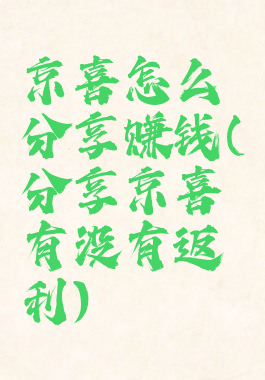 京喜怎么
分享赚钱(
分享京喜
有没有返
利)